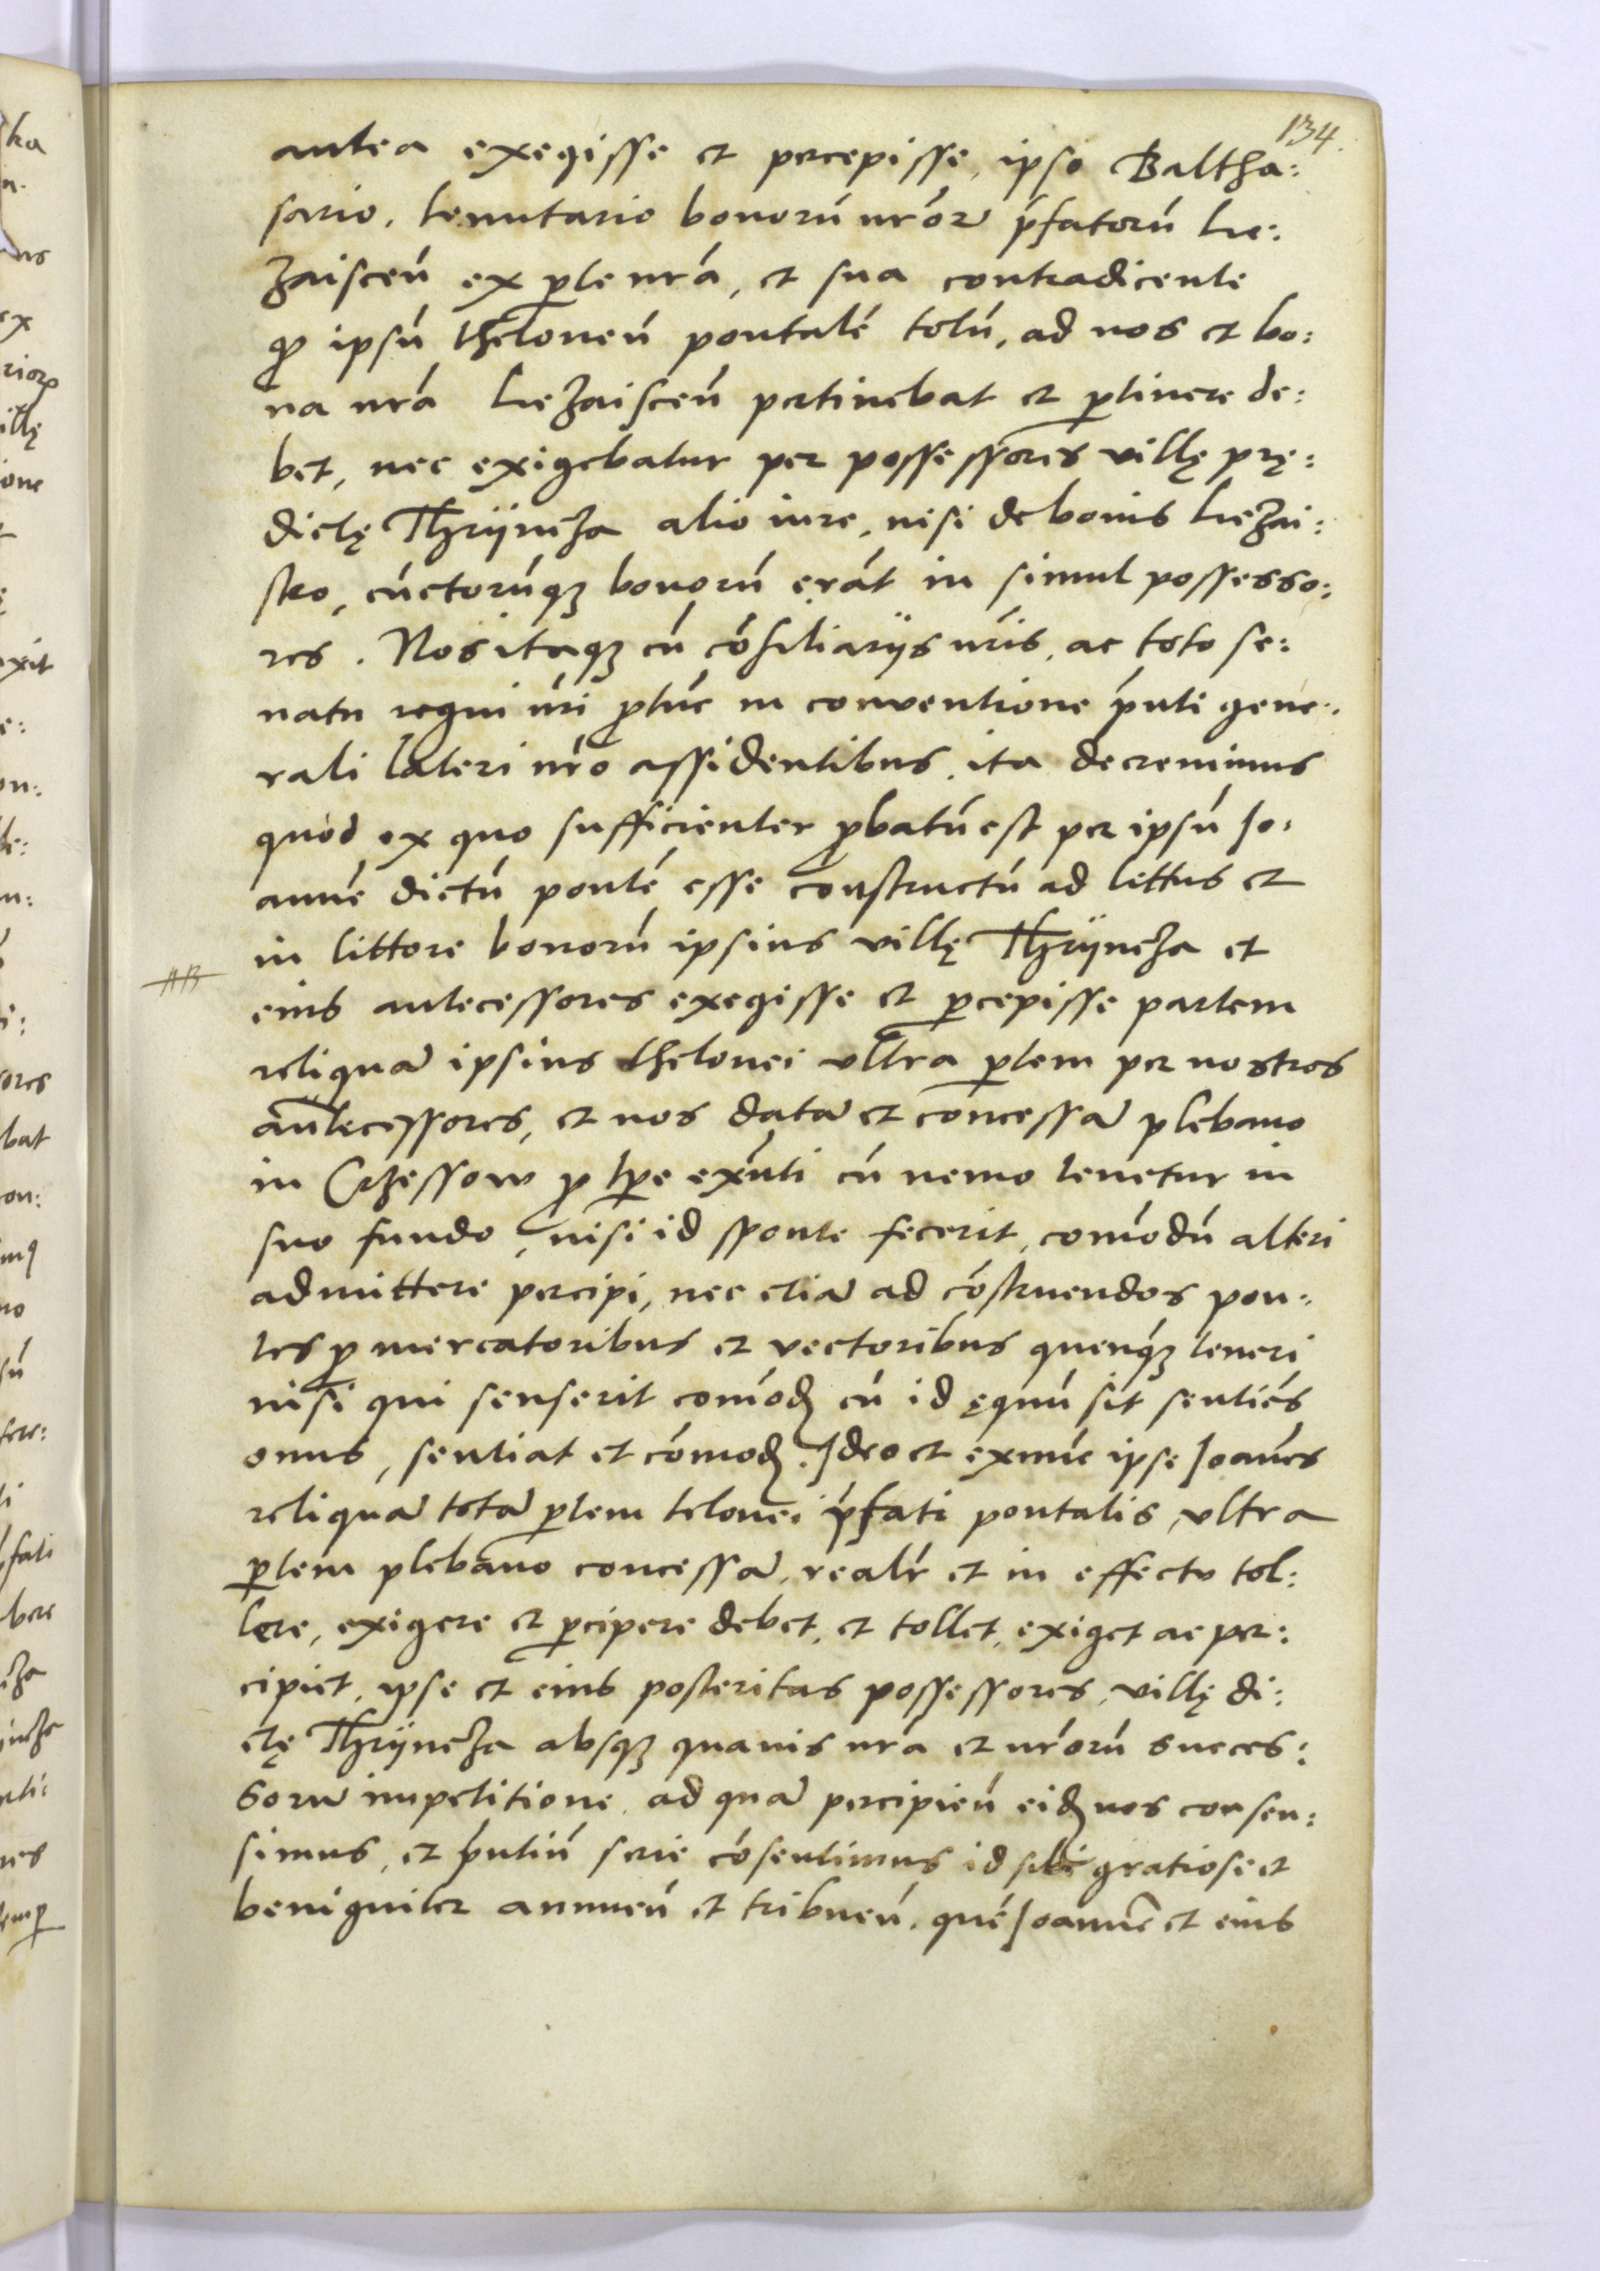 134.
antea exegisse et percepisse, ipso Baltha:
sario, tenutario bonorū nrõr p̃fatorū Lie:
zaiscēn ex p̱te nrã, et sua contradicente
qp ipsū theloneū pontalē totū, ad nos et bo:
na nrã Liezaiscēn pertinebat et p̱tinere de:
bet, nec exigebatur per possessores villę prę:
dictę Thrÿncza alio iure, nisi de bonis Liezai:
sko, cūctorūqꝫ bonorū erāt in simul possesso:
res. Nos itaqꝫ cū cōsiliarÿs nrĩs, ac toto se:
natu regni nrĩ p̱tūc in conventione p̃nti gene:
rali lateri nrõ assidentibus, ita decrevimus
quòd ex quo sufficienter ꝓbatū est per ipsū Jo:
annē dictū pontē esse constructū ad littus et
in littore bonorū ipsius villę Thrÿncza et
eius antecessores exegisse et p̱cepisse partem
reliquā ipsius thelonei ultra p̱tem per nostros
antecessores, et nos datā et concessā plebano
in Rzessow ꝓ tp̱e exñti cū nemo tenetur in
suo fundo, nisi id sponte fecerit, comōdū alteri
admittere percipi, nec etiā ad cōstruendos pon:
tes ꝓ mercatoribus et vectoribus quenqꝫ teneri
nisi qui senserit comōd cū id ęquū sit sentiēs
onus, sentiat et cōmod. Ideo et exnūc ipse Joañes
reliquā totā p̱tem telonei p̃fati pontalis, ultra
p̱tem plebano concessā, realr̃ et in effectu tol:
lere, exigere et p̱cipere debet, et tollet, exiget ac per:
cipiet, ipse et eius posteritas possessores, villę di:
ctę Thrÿncza absqꝫ quavis nrã et nrõrū succes:
sorū impetitione, ad quā percipiēn eid nos consen:
simus, et p̃ntiū serie cōsentimus id sibi gratiose et
benigniter annuēn et tribuēn. quē Joannē et eius